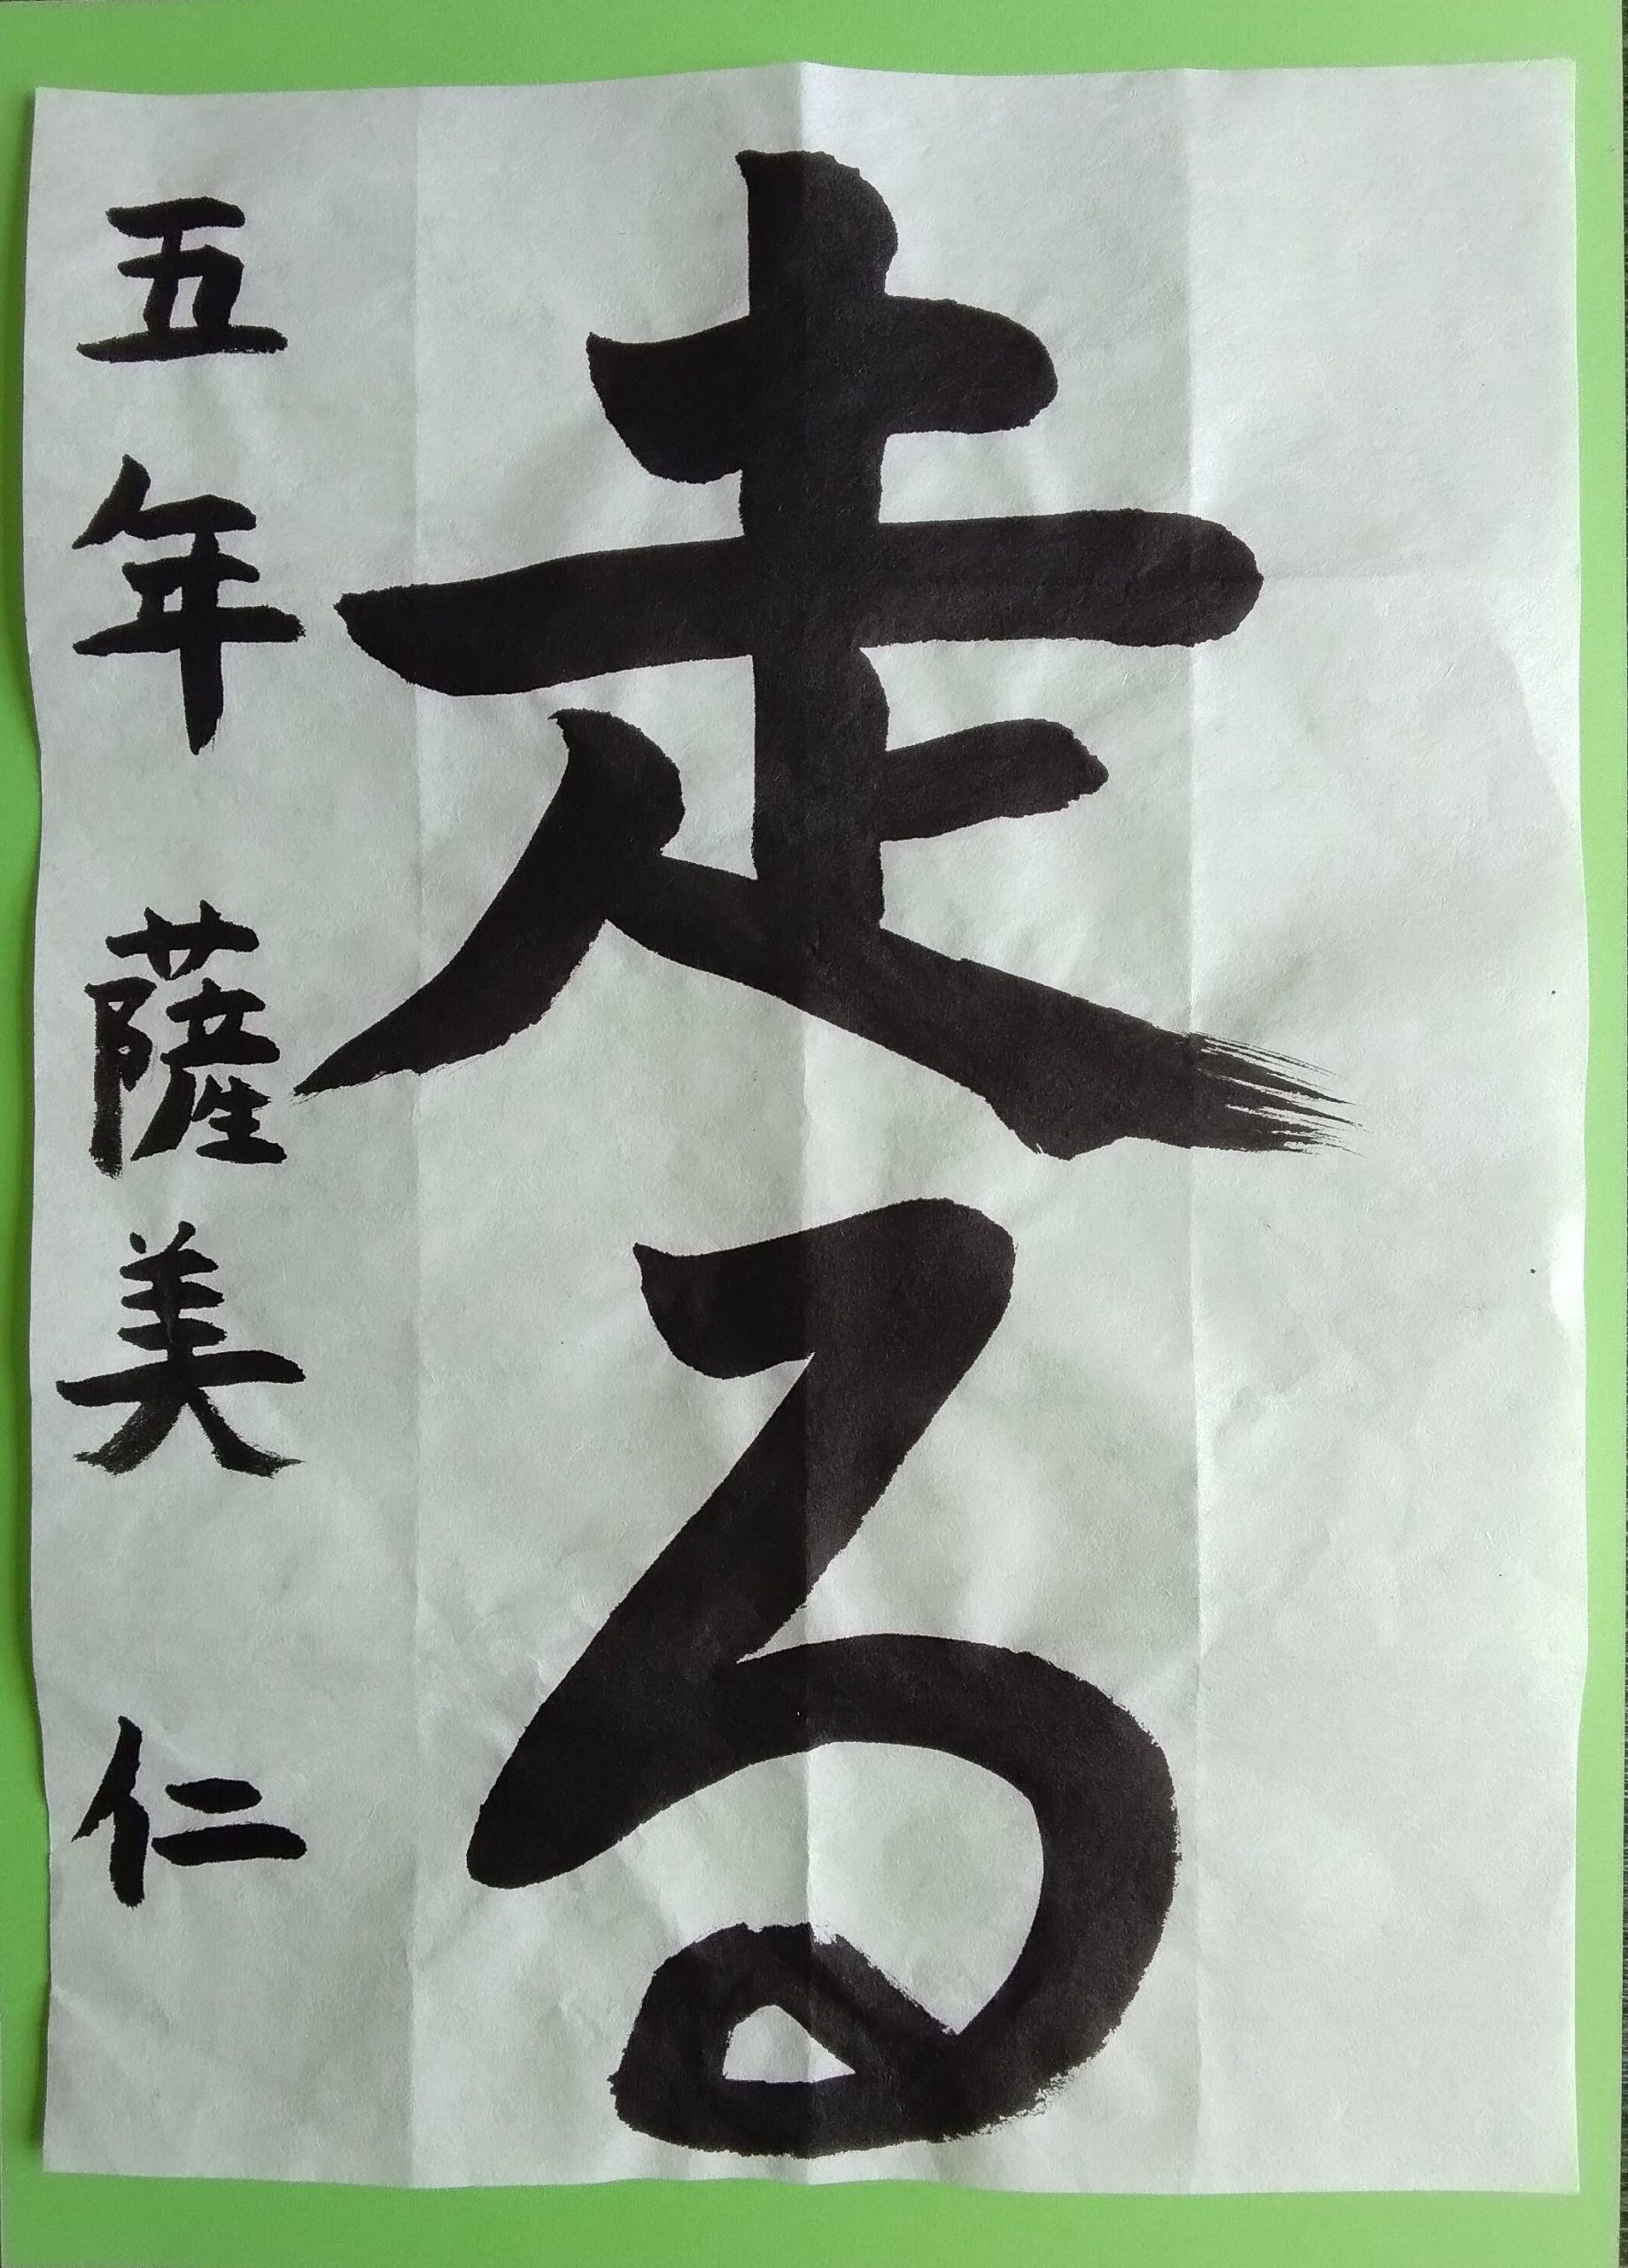 走る
五年 薩美 仁